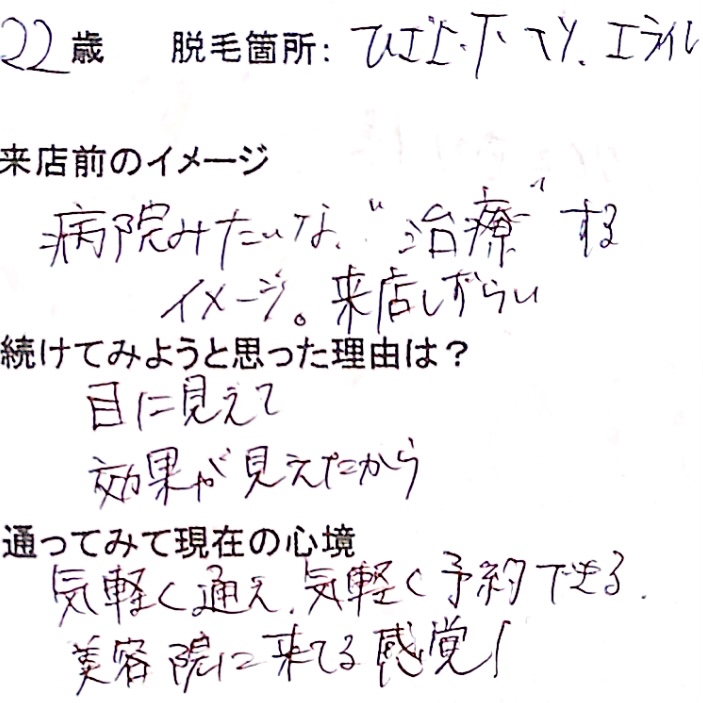 22歳 脱毛箇所: ひげ上・下 エラ
来店前のイメージ
病院みたいな、"治療"する
イメージ。来店しずらい
続けてみようと思った理由は？
目に見えて
効果が見えたから
通ってみて現在の心境
気軽く通え、気軽く予約できる。
美容院に来てる感覚！